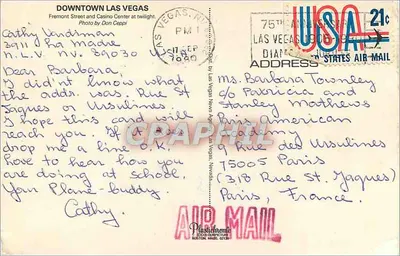 DOWNTOWN LAS VEGAS
Fremont Street and Casino Center at twilight.
Photo by Don Ceppi
Cathy
3911 La Madre
N.L.V. NV 89030
Dear Barbara,
I didn't know what
the adds. was. Rue St
Jaques or Ursulines.
I hope this card will
reach you. If it does
drop me a line O.K.
Love to hear how you
are doing at school.
Your Plane-buddy.
Cathy.
LAS VEGAS, NV
PM
11 SEP
1980
75TH ANNIVERSARY
LAS VEGAS 1905-80
DIAMOND
USA 21c
UNITED STATES AIR MAIL
ADDRESS
Ms. Barbara Townley
c/o Patricia and
Stanley Mathews
Paris American
Academy
9 Rue des Ursulines
75005 Paris
(318 Rue St. Jaques)
Paris, France.
AIR MAIL
Plastichrome
CPAPHIL